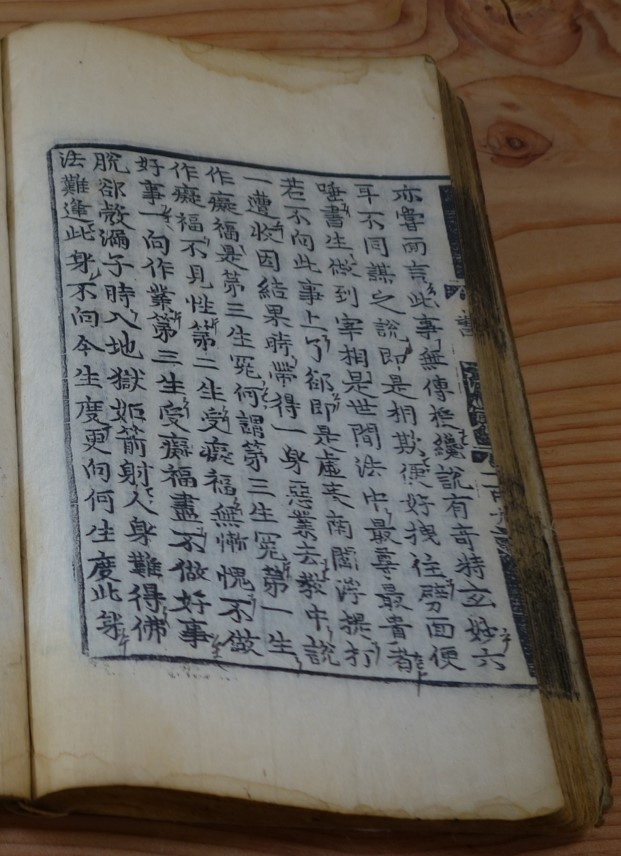 書
亦嘗面言此事無傳授纔說有奇特玄妙六
耳不同謀之說即是相欺便好拽住劈面便
唾書生做到宰相是世間法中最尊最貴者
若不向此事上了郤即是虛来南閻浮提打
一遭收因結果時帶得一身惡業去教中說
作癡福是第三生冤何謂第三生冤第一生
作癡福不見性第二生受癡福無慚愧不做
好事一向作業第三生受癡福盡不做好事
脫郤殼漏子時入地獄如箭射人身難得佛
法難逢此身不向今生度更向何生度此身